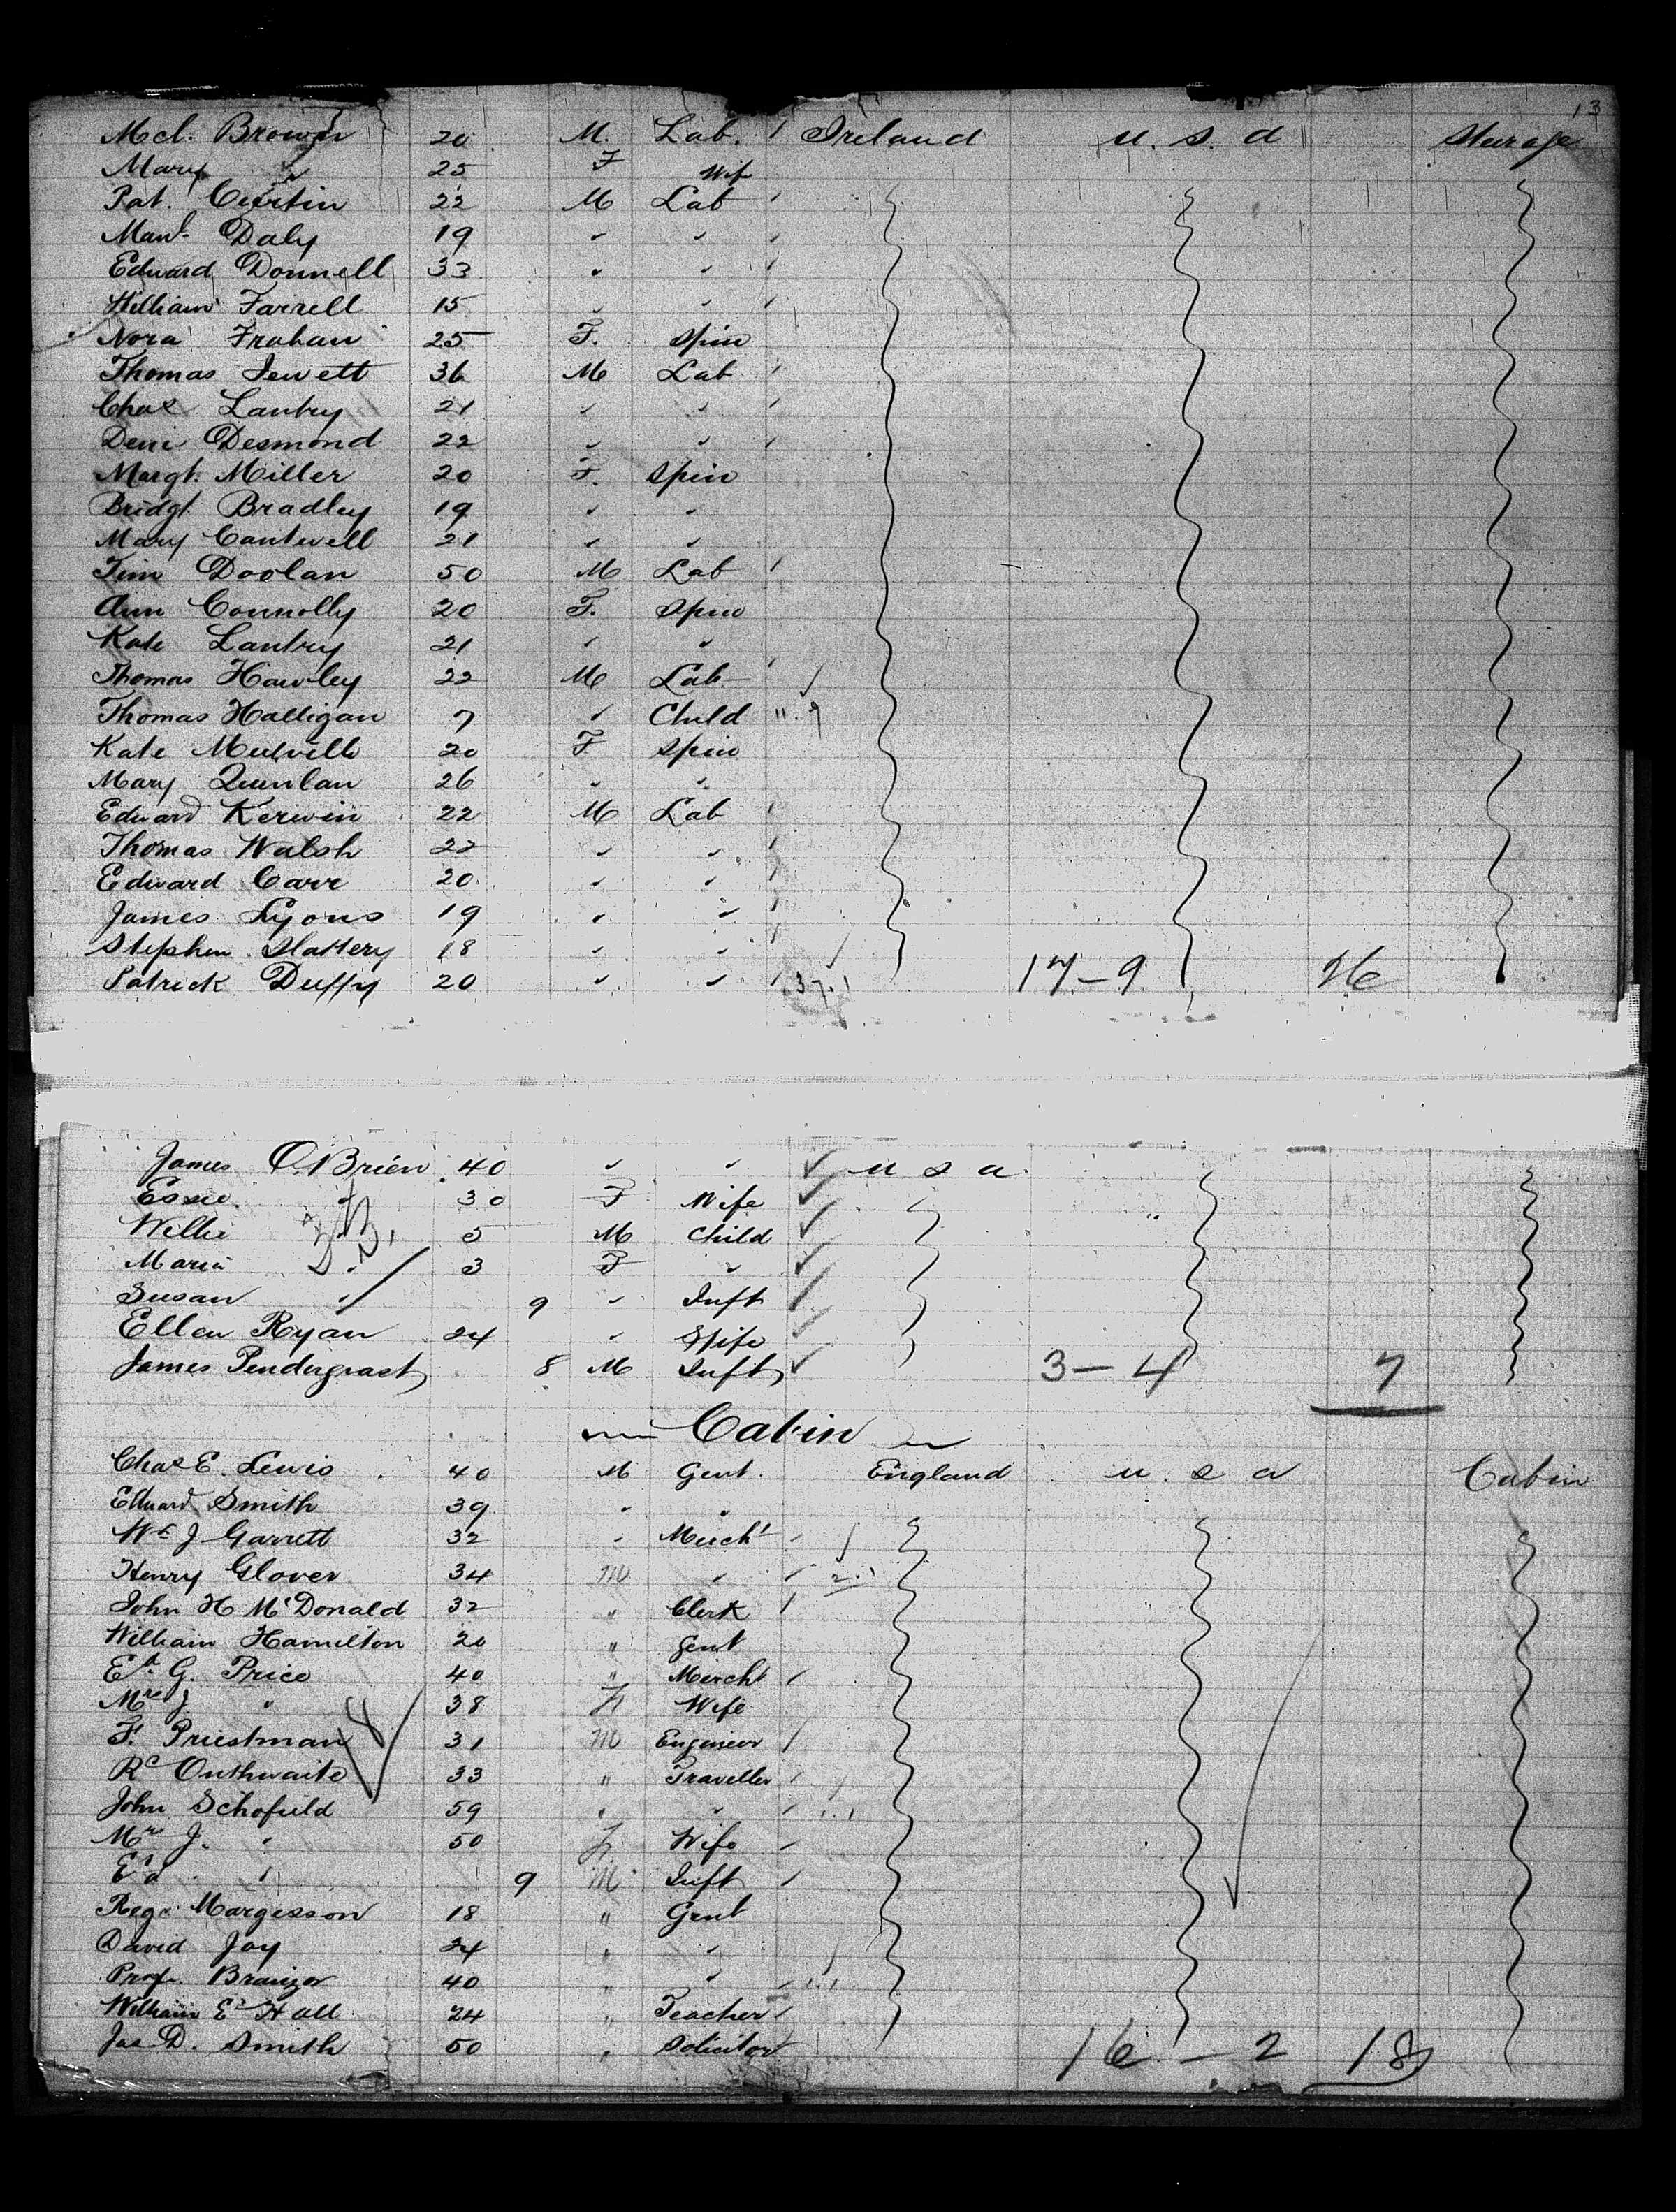 13
Mcl. Brown 20 M. Lab. Ireland U. S. A Steerage
Mary " 25 F Wife
Pat. Curtin 22 M Lab
Daly 19 " "
Edward Donnell 33 " "
William Farrell 15 " "
Nora Frahan 25 F. Spin
Thomas Jewett 36 M Lab
Chas Lantry 21 " "
Desmond 22 " "
Margt. Miller 20 F. Spin
Bridgt. Bradley 19 " "
Mary Cantwell 21 " "
Tim Doolan 50 M Lab
Ann Connolly 20 F. Spin
Kate Lantry 21 " "
Thomas Hawley 22 M Lab
Thomas Halligan 7 " Child
Kate Mulville 20 F Spin
Mary Quinlan 26 " "
Edward Kerwin 22 M Lab
Thomas Walsh 22 " "
Edward Carr 20 " "
James Lyons 19 " "
Stephen Slattery 18 " "
Patrick Duffy 20 " " 17-9 26
James O'Brien 40 " " U S A
Essie " 30 F Wife "
Willie 5 M Child
Maria " 3 F "
Susan " 9 " Inft
Ellen Ryan 24 " Wife
James Pendergrast 8 M Inft 3-4 7
Cabin
Chas E. Lewis 40 M Gent. England U. S A Cabin
Edward Smith 39 " "
Wm J Garrett 32 " Mercht
Henry Glover 34 M "
John H McDonald 32 " Clerk
William Hamilton 20 " Gent
Ed. G. Price 40 " Mercht
Mrs J " 38 F Wife
F. Priestman 31 M Engineer
Rd Outhwaite 33 " Traveller
John Schofield 59 " "
Mrs J. " 50 F Wife
Ed " 9 M Inft
Regd. Margesson 18 " Gent
David Joy 24 " "
Prof. 40 " "
William Ed Hall 24 " Teacher
Jas D. Smith 50 " Solicitor 16-2 18